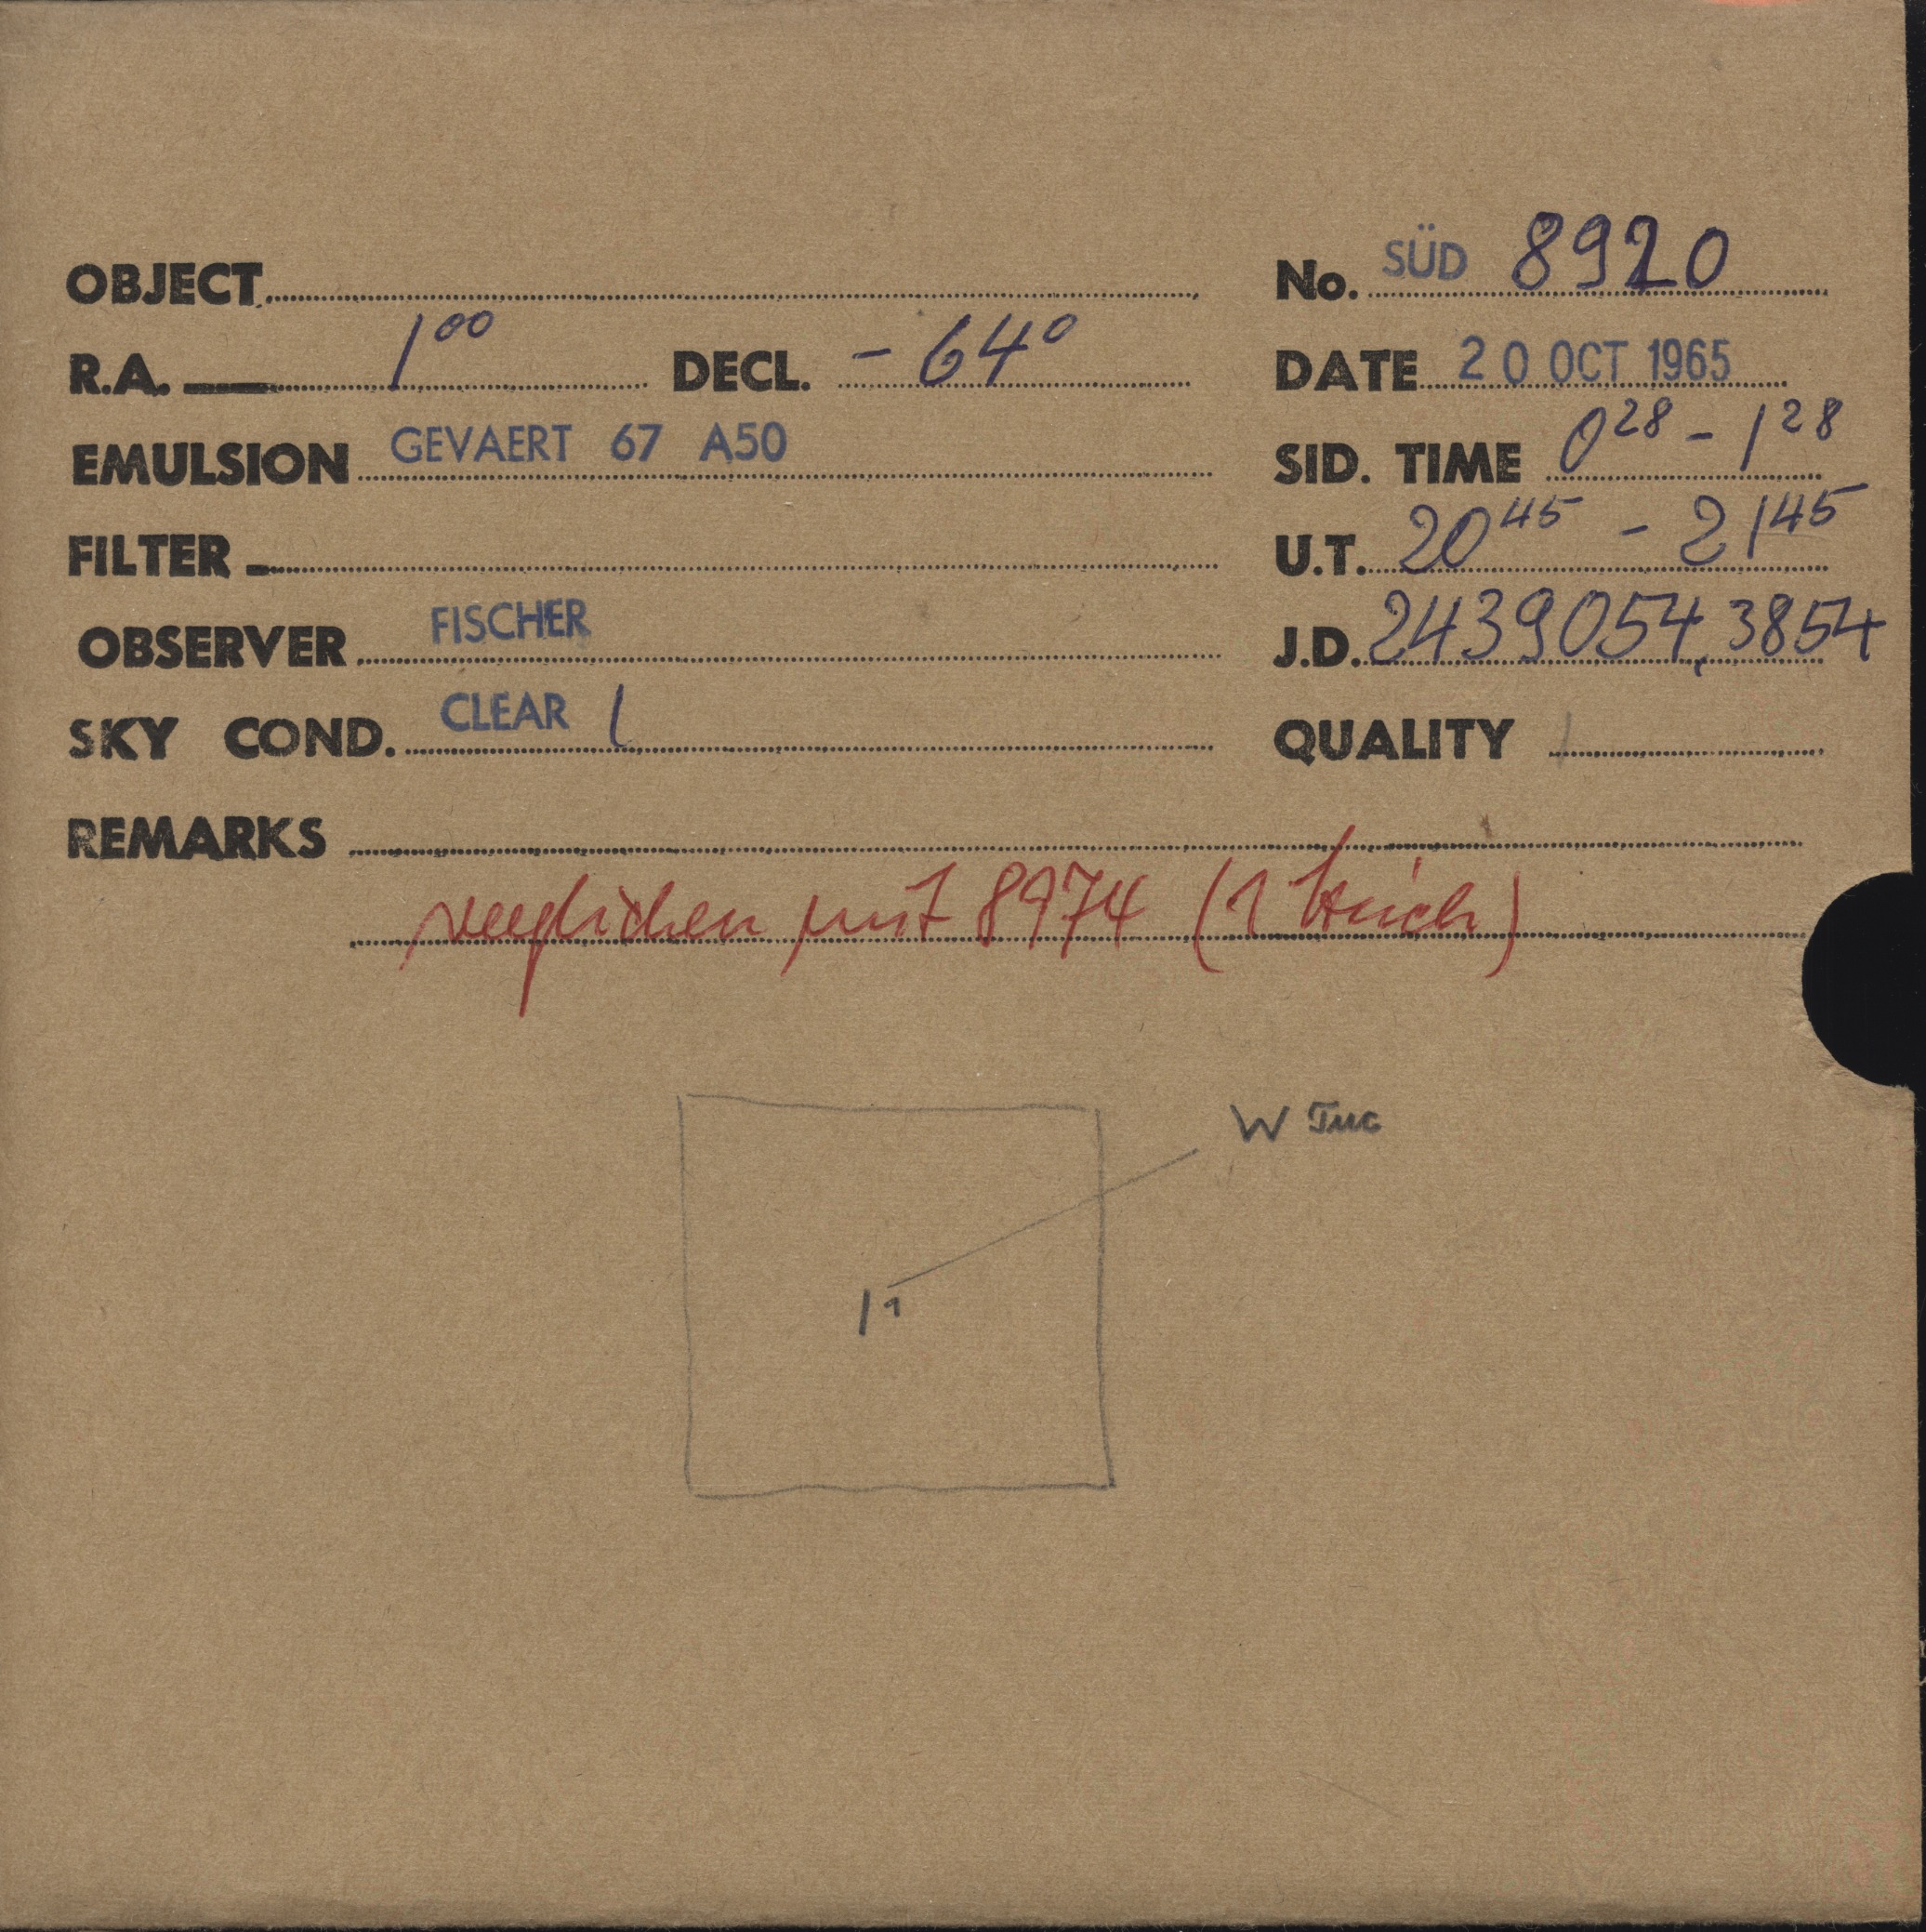 OBJECT
No. SÜD 8920
R.A. 1 00 DECL. - 64°
DATE 20 OCT 1965
EMULSION GEVAERT 67 A50
SID. TIME 0 28 - 1 28
FILTER
U.T. 20 45 - 21 45
OBSERVER FISCHER
J.D. 2439054,3854
SKY COND. CLEAR 1
QUALITY 1
REMARKS
verglichen mit 8974 (1 Strich)
W Tuc
1